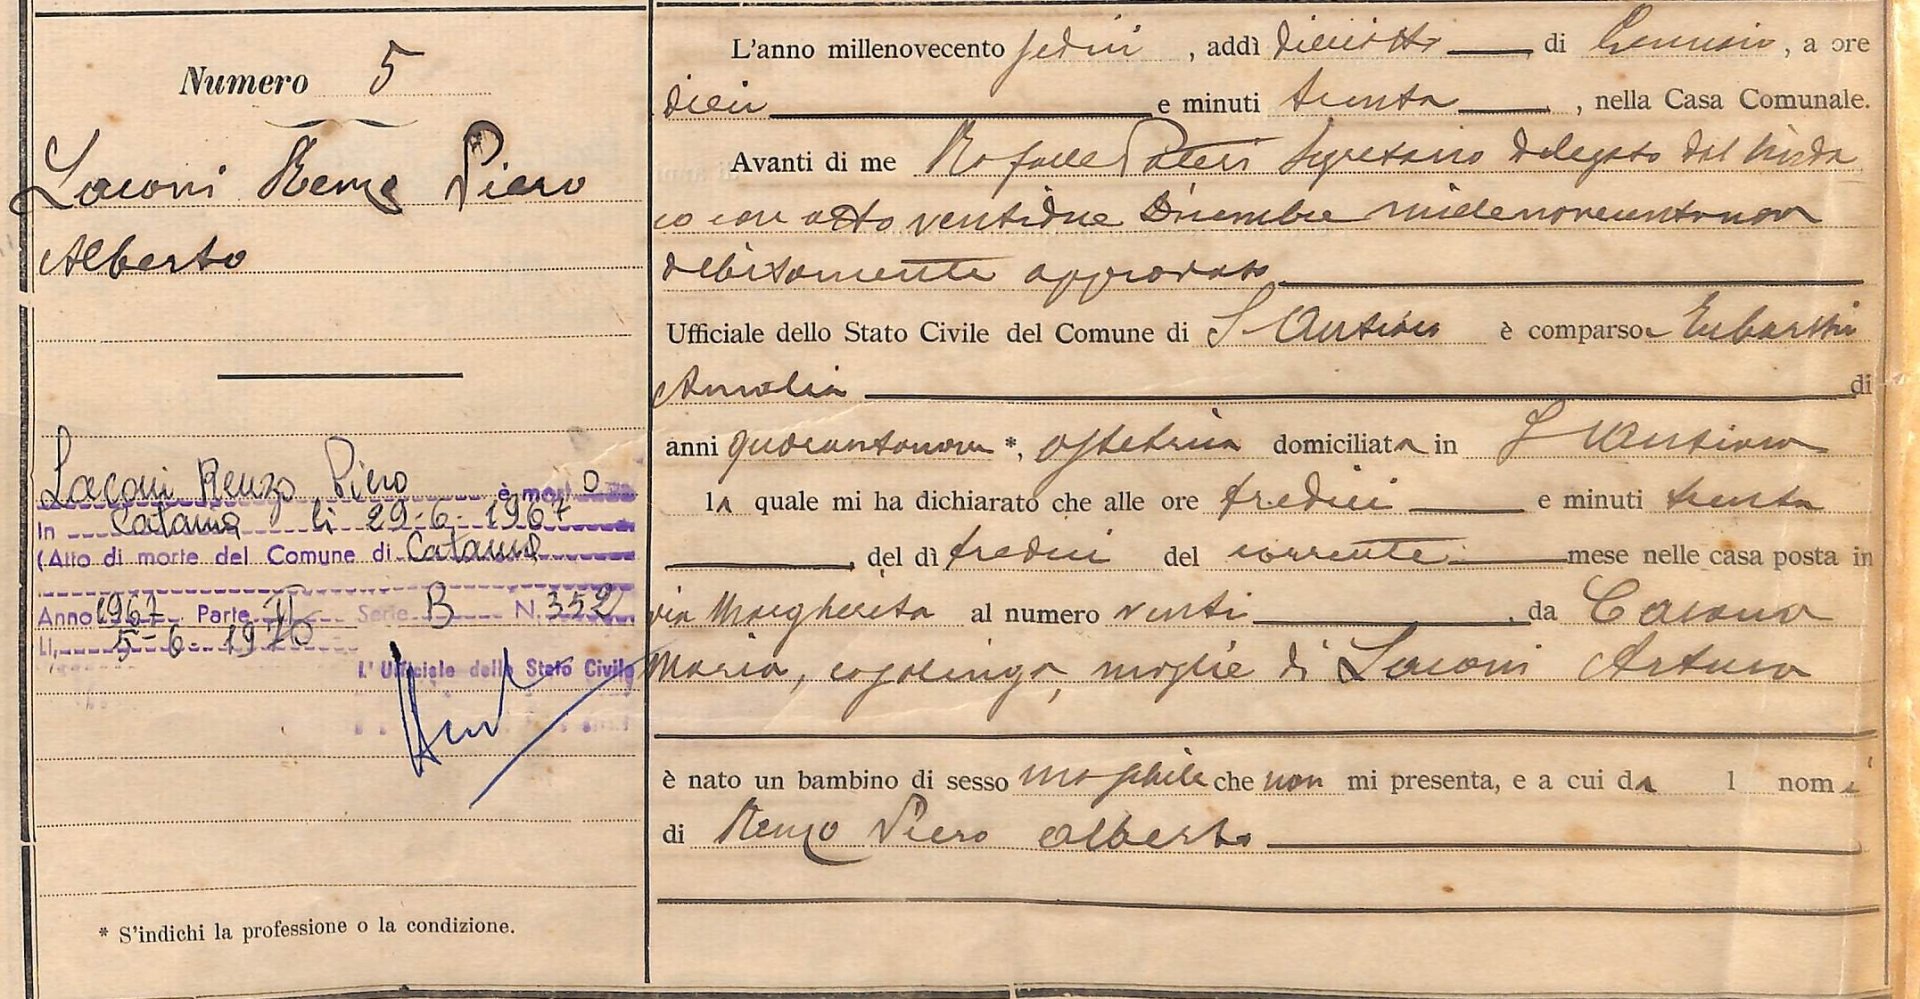 Numero 5
Laconi Renzo Piero
Alberto
Laconi Renzo Piero è morto
In Catania li 29-6-1967
(Atto di morte del Comune di Catania
Anno 1967 Parte II Serie B N. 352
Li, 5-6-1970
L'Ufficiale dello Stato Civile
* S'indichi la professione o la condizione.
L'anno millenovecento sedici, addì diciotto di Gennaio, a ore
dieci e minuti trenta, nella Casa Comunale.
Avanti di me Rafaele Segretario delegato dal Sinda
co con atto ventidue Dicembre millenovecentonove
debitamente approvato
Ufficiale dello Stato Civile del Comune di S Antioco è comparsa
Amalia di
anni quarantanove *, ostetrica domiciliata in S Antioco
la quale mi ha dichiarato che alle ore tredici e minuti trenta
del dì tredici del corrente mese nelle casa posta in
via Margherita al numero venti da
Maria, casalinga, moglie di Laconi Arturo
è nato un bambino di sesso maschile che non mi presenta, e a cui da i nomi
di Renzo Piero Alberto